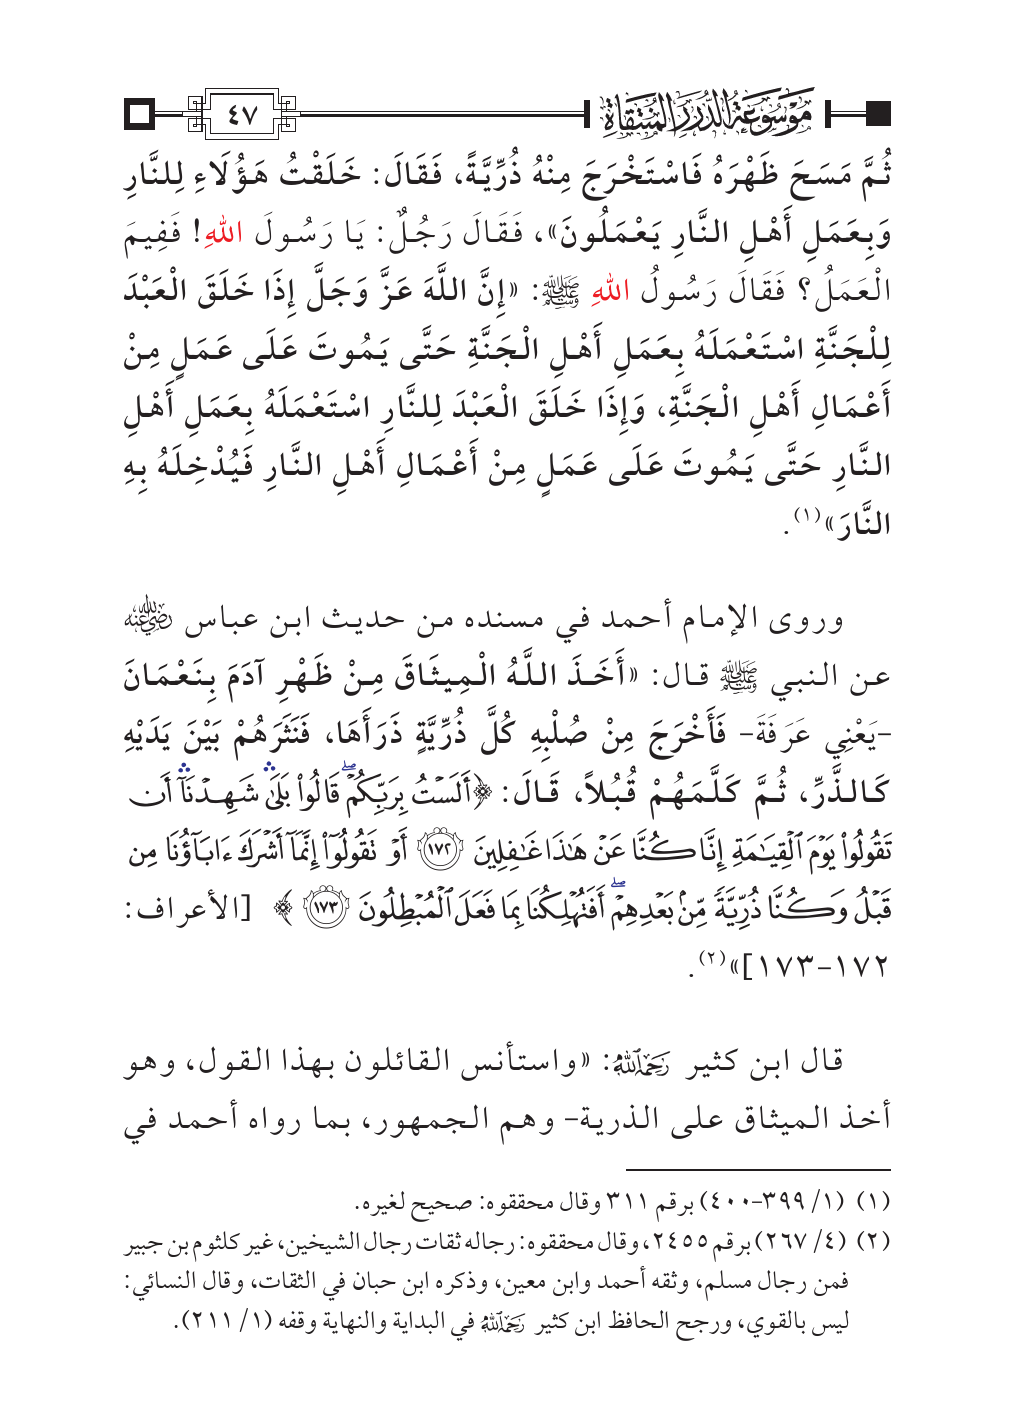 موسوعة الدرر المنتقاة
٤٧
ثُمَّ مَسَحَ ظَهْرَهُ فَاسْتَخْرَجَ مِنْهُ ذُرِّيَّةً، فَقَالَ: خَلَقْتُ هَؤُلَاءِ لِلنَّارِ
وَبِعَمَلِ أَهْلِ النَّارِ يَعْمَلُونَ»، فَقَالَ رَجُلٌ: يَا رَسُولَ اللهِ! فَفِيمَ
الْعَمَلُ؟ فَقَالَ رَسُولُ اللهِ ﷺ: «إِنَّ اللَّهَ عَزَّ وَجَلَّ إِذَا خَلَقَ الْعَبْدَ
لِلْجَنَّةِ اسْتَعْمَلَهُ بِعَمَلِ أَهْلِ الْجَنَّةِ حَتَّى يَمُوتَ عَلَى عَمَلٍ مِنْ
أَعْمَالِ أَهْلِ الْجَنَّةِ، وَإِذَا خَلَقَ الْعَبْدَ لِلنَّارِ اسْتَعْمَلَهُ بِعَمَلِ أَهْلِ
النَّارِ حَتَّى يَمُوتَ عَلَى عَمَلٍ مِنْ أَعْمَالِ أَهْلِ النَّارِ فَيُدْخِلَهُ بِهِ
النَّارَ»(١).
وروى الإمام أحمد في مسنده من حديث ابن عباس رضي الله عنه
عن النبي ﷺ قال: «أَخَذَ اللَّهُ الْمِيثَاقَ مِنْ ظَهْرِ آدَمَ بِنَعْمَانَ
-يَعْنِي عَرَفَةَ- فَأَخْرَجَ مِنْ صُلْبِهِ كُلَّ ذُرِّيَّةٍ ذَرَأَهَا، فَنَثَرَهُمْ بَيْنَ يَدَيْهِ
كَالذَّرِّ، ثُمَّ كَلَّمَهُمْ قُبُلاً، قَالَ: ﴿أَلَسۡتُ بِرَبِّكُمۡۖ قَالُواْ بَلَىٰۛ شَهِدۡنَآۛ أَن
تَقُولُواْ يَوۡمَ ٱلۡقِيَٰمَةِ إِنَّا كُنَّا عَنۡ هَٰذَا غَٰفِلِينَ ١٧٢ أَوۡ تَقُولُوٓاْ إِنَّمَآ أَشۡرَكَ ءَابَآؤُنَا مِن
قَبۡلُ وَكُنَّا ذُرِّيَّةٗ مِّنۢ بَعۡدِهِمۡۖ أَفَتُهۡلِكُنَا بِمَا فَعَلَ ٱلۡمُبۡطِلُونَ ١٧٣ ﴾ [الأعراف:
١٧٢-١٧٣]»(٢).
قال ابن كثير رحمه الله: «واستأنس القائلون بهذا القول، وهو
أخذ الميثاق على الذرية- وهم الجمهور، بما رواه أحمد في
(١) (١/ ٣٩٩-٤٠٠) برقم ٣١١ وقال محققوه: صحيح لغيره.
(٢) (٤/ ٢٦٧) برقم ٢٤٥٥، وقال محققوه: رجاله ثقات رجال الشيخين، غير كلثوم بن جبير
فمن رجال مسلم، وثقه أحمد وابن معين، وذكره ابن حبان في الثقات، وقال النسائي:
ليس بالقوي، ورجح الحافظ ابن كثير رحمه الله في البداية والنهاية وقفه (١/ ٢١١).